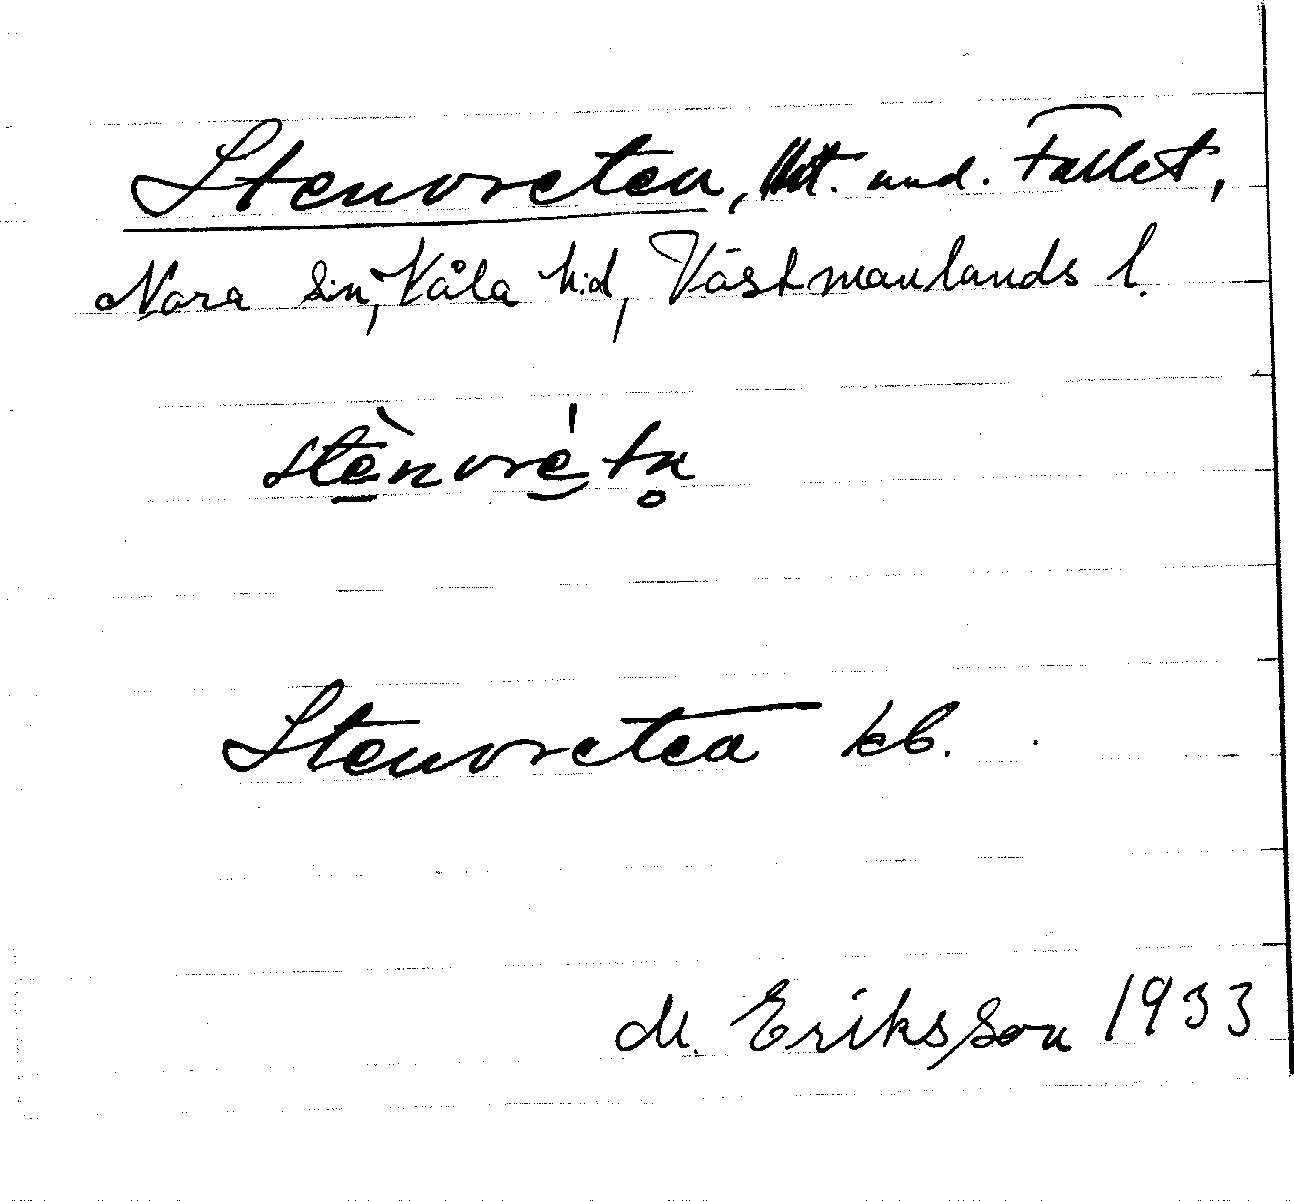 Stenvreten, lht. und. Fallet,
Nora s:n, Våla h:d, Västmanlands l.
stènvré tn̥
Stenvreten kb.
M. Eriksson 1933